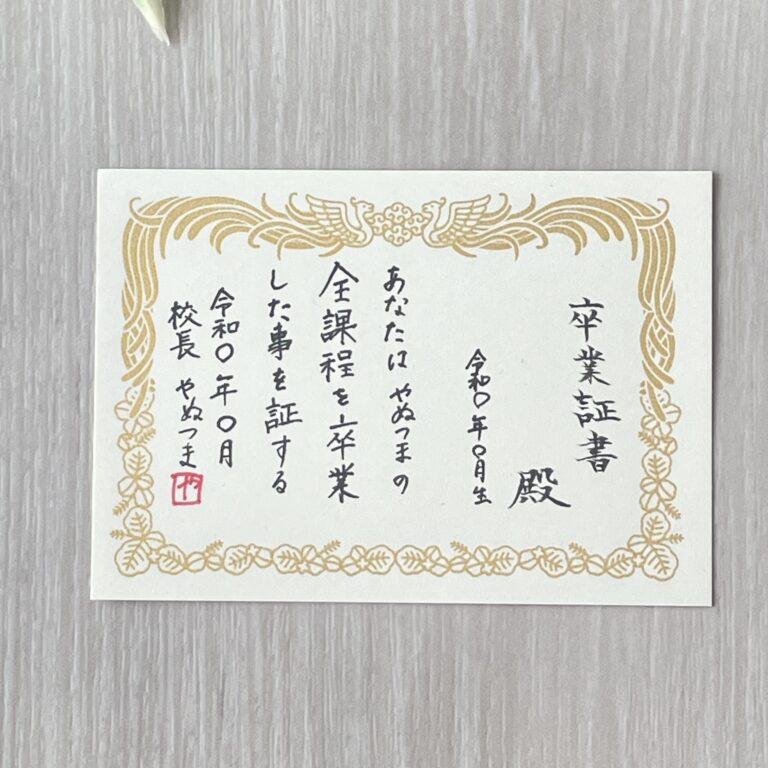 卒業証書
殿
令和〇年〇月生
あなたは やぬつまの
全課程を卒業
した事を証する
令和〇年〇月
校長 やぬつま